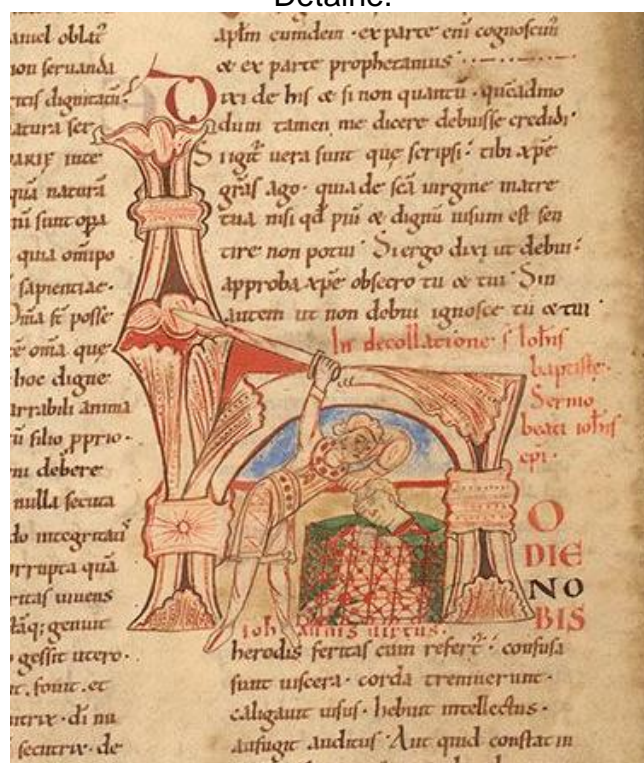 Detaine.
anuel oblat᷒
non seruanda
ritis dignitatū
natura ser
uariæ inte
quā naturā
nū sunt opa
quia omīpo
sapientiae.
Om̄a sē posse
omā que
hoc digne
arrabili anima
ū filio pprio.
ni debere
nulla secuta
do integritatī
rrupta quā
ritas uiuens
tāq; genuit
gessit utero.
t. fouit. et
utrix. di nu
secutrix. de
aplm eumdem. ex parte eni cognoscim᷒
& ex parte prophetamus
Dixi de his & si non quantū. quēadmo
dum tamen me dicere debuisse credidi.
Si igit̄ uera sunt que scripsi. tibi xpe
grās ago. quia de scā uirgine matre
tua nisi qd piū & dignū uisum est sen
tire non potui. Si ergo dixi ut debui.
approba xpe obsecro tu & tui. Sin
autem ut non debui ignosce tu & tui
In decollatione s̄ Iohis
baptiste.
Sermo
beati iohis
epi.
HODIE
NO
BIS
iohannis uirtus.
herodis feritas cum refert̄. confusa
sunt uiscera. corda tremuerunt.
caligauit uisus. hebuit intellectus.
aufugit auditus. Aut quid constat in